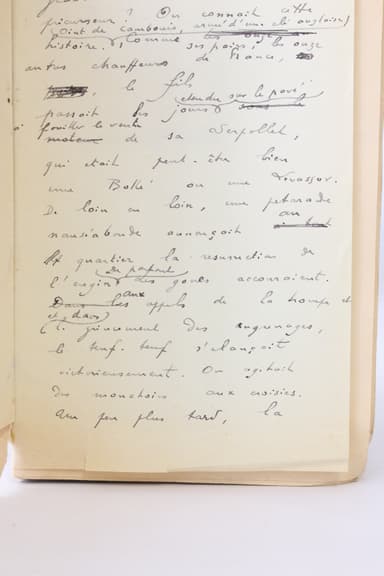 précurseur ? On connait cette
(oint de cambouis, armé d'une clé anglaise)
histoire. Comme ses pairs, les onze
autres chauffeurs de France,
le fils
étendu sur le pavé
passait les jours
à fouiller le ventre
moteur de sa Serpollet,
qui était peut-être bien
une Bollé ou une Levassor.
De loin en loin, une pétarade
au
nauséabonde annonçait
quartier la résurrection de
l'engin, des gones accouraient.
aux
Dans les appels de la trompe et
grincement des engrenages,
le teuf-teuf s'élançait
victorieusement. On agitait
des mouchoirs aux croisées.
Un peu plus tard, la